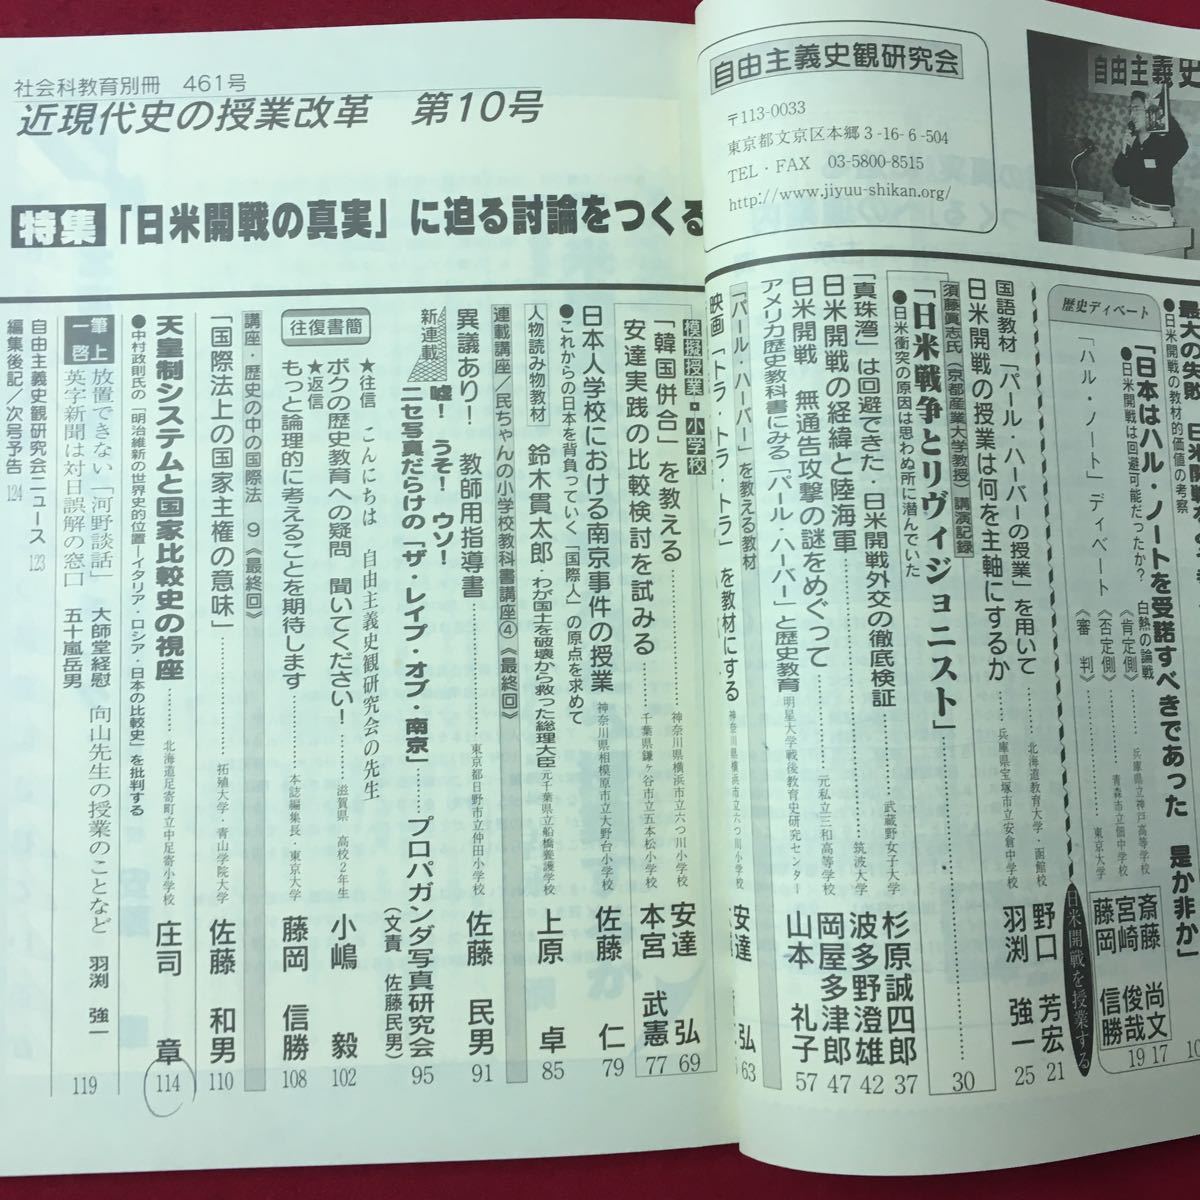 社会科教育別冊 461号
近現代史の授業改革 第10号
特集 「日米開戦の真実」に迫る討論をつくる
自由主義史観研究会
〒113-0033
東京都文京区本郷3-16-6-504
TEL・FAX 03-5800-8515
http://www.jiyuu-shikan.org/
自由主義史
最大の失敗
●日米開戦の教材的価値の考察
10
歴史ディベート
「日本はハル・ノートを受諾すべきであった 是か非か」
●日米開戦は回避可能だったか? 白熱の論戦
「ハル・ノート」ディベート
《肯定側》 兵庫県立神戸高等学校 斎藤 尚文 17
《否定側》 青森市立佃中学校 宮崎 俊哉 19
《審 判》 東京大学 藤岡 信勝
日米開戦を授業する
国語教材「パール・ハーバーの授業」を用いて 北海道教育大学・函館校 野口 芳宏 21
日米開戦の授業は何を主軸にするか 兵庫県宝塚市立安倉中学校 羽渕 強一 25
須藤眞志氏(京都産業大学教授) 講演記録
「日米戦争とリヴィジョニスト」 30
●日米衝突の原因は思わぬ所に潜んでいた
「真珠湾」は回避できた・日米開戦外交の徹底検証 武蔵野女子大学 杉原誠四郎 37
日米開戦の経緯と陸海軍 筑波大学 波多野澄雄 42
日米開戦 無通告攻撃の謎をめぐって 元私立三和高等学校 岡屋多津郎 47
アメリカ歴史教科書にみる「パール・ハーバー」と歴史教育 明星大学戦後教育史研究センター 山本 礼子 57
「パール・ハーバー」を教える教材
映画「トラ・トラ・トラ」を教材にする 神奈川県横浜市立六つ川小学校 安達 弘 63
模擬授業・小学校
「韓国併合」を教える 神奈川県横浜市立六つ川小学校 安達 弘 69
安達実践の比較検討を試みる 千葉県鎌ヶ谷市立五本松小学校 本宮 武憲 77
日本人学校における南京事件の授業 神奈川県相模原市立大野台小学校 佐藤 仁 79
●これからの日本を背負っていく「国際人」の原点を求めて
人物読み物教材 鈴木貫太郎・わが国土を破壊から救った総理大臣 元千葉県立船橋養護学校 上原 卓 85
連載講座/民ちゃんの小学校教科書講座④《最終回》
異議あり! 教師用指導書 東京都日野市立仲田小学校 佐藤 民男 91
新連載 嘘! うそ! ウソ!
ニセ写真だらけの「ザ・レイプ・オブ・南京」 プロパガンダ写真研究会 95
(文責 佐藤民男)
往復書簡
★往信 こんにちは 自由主義史観研究会の先生
ボクの歴史教育への疑問 聞いてください! 滋賀県 高校2年生 小嶋 毅 102
★返信
もっと論理的に考えることを期待します 本誌編集長・東京大学 藤岡 信勝 108
講座・歴史の中の国際法 9 《最終回》
「国際法上の国家主権の意味」 拓殖大学・青山学院大学 佐藤 和男 110
天皇制システムと国家比較史の視座 北海道足寄町立中足寄小学校 庄司 章 114
●中村政則氏の「明治維新の世界史的位置―イタリア・ロシア・日本の比較史」を批判する
一筆啓上
放置できない「河野談話」 大師堂経慰 向山先生の授業のことなど 羽渕 強一
英字新聞は対日誤解の窓口 五十嵐岳男 119
自由主義史観研究会ニュース 123
編集後記/次号予告 124